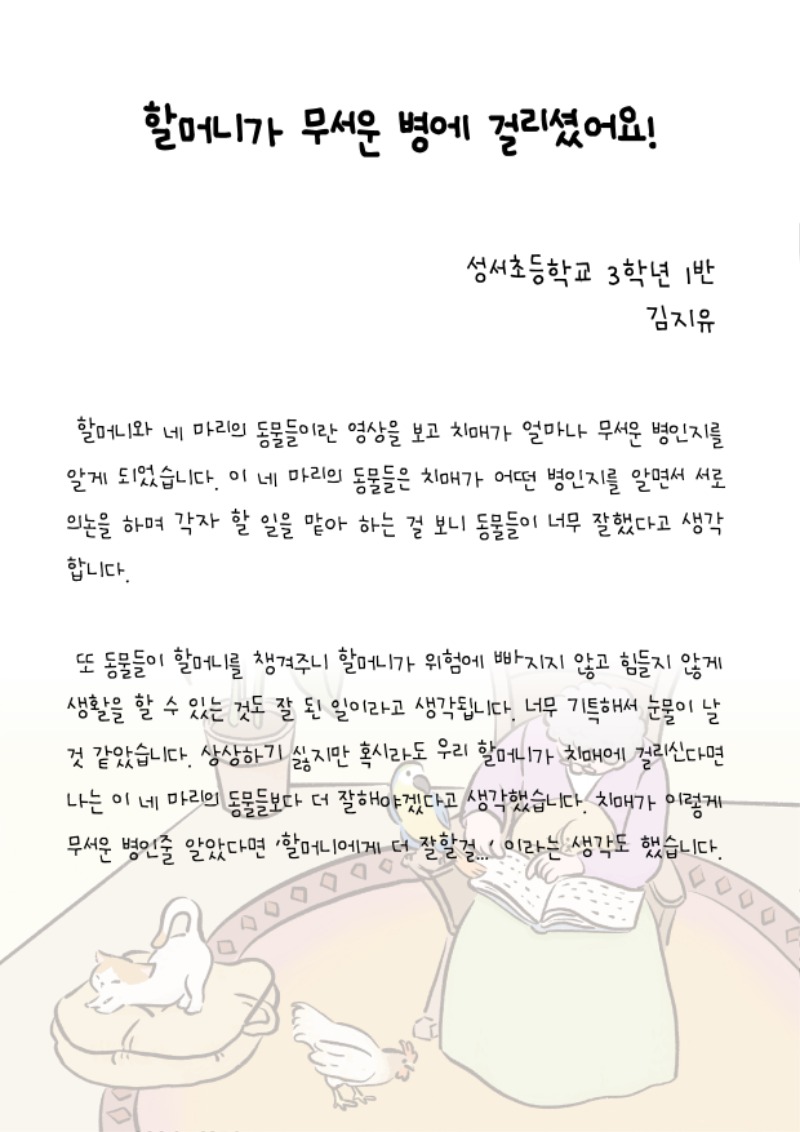 할머니가 무서운 병에 걸리셨어요!
성서초등학교 3학년 1반
김지유
할머니와 네 마리의 동물들이란 영상을 보고 치매가 얼마나 무서운 병인지를
알게 되었습니다. 이 네 마리의 동물들은 치매가 어떤 병인지를 알면서 서로
의논을 하며 각자 할 일을 맡아 하는 걸 보니 동물들이 너무 잘했다고 생각
합니다.
또 동물들이 할머니를 챙겨주니 할머니가 위험에 빠지지 않고 힘들지 않게
생활을 할 수 있는 것도 잘 된 일이라고 생각됩니다. 너무 기특해서 눈물이 날
것 같았습니다. 상상하기 싫지만 혹시라도 우리 할머니가 치매에 걸리신다면
나는 이 네 마리의 동물들보다 더 잘해야겠다고 생각했습니다. 치매가 이렇게
무서운 병인줄 알았다면 '할머니에게 더 잘할걸...' 이라는 생각도 했습니다.